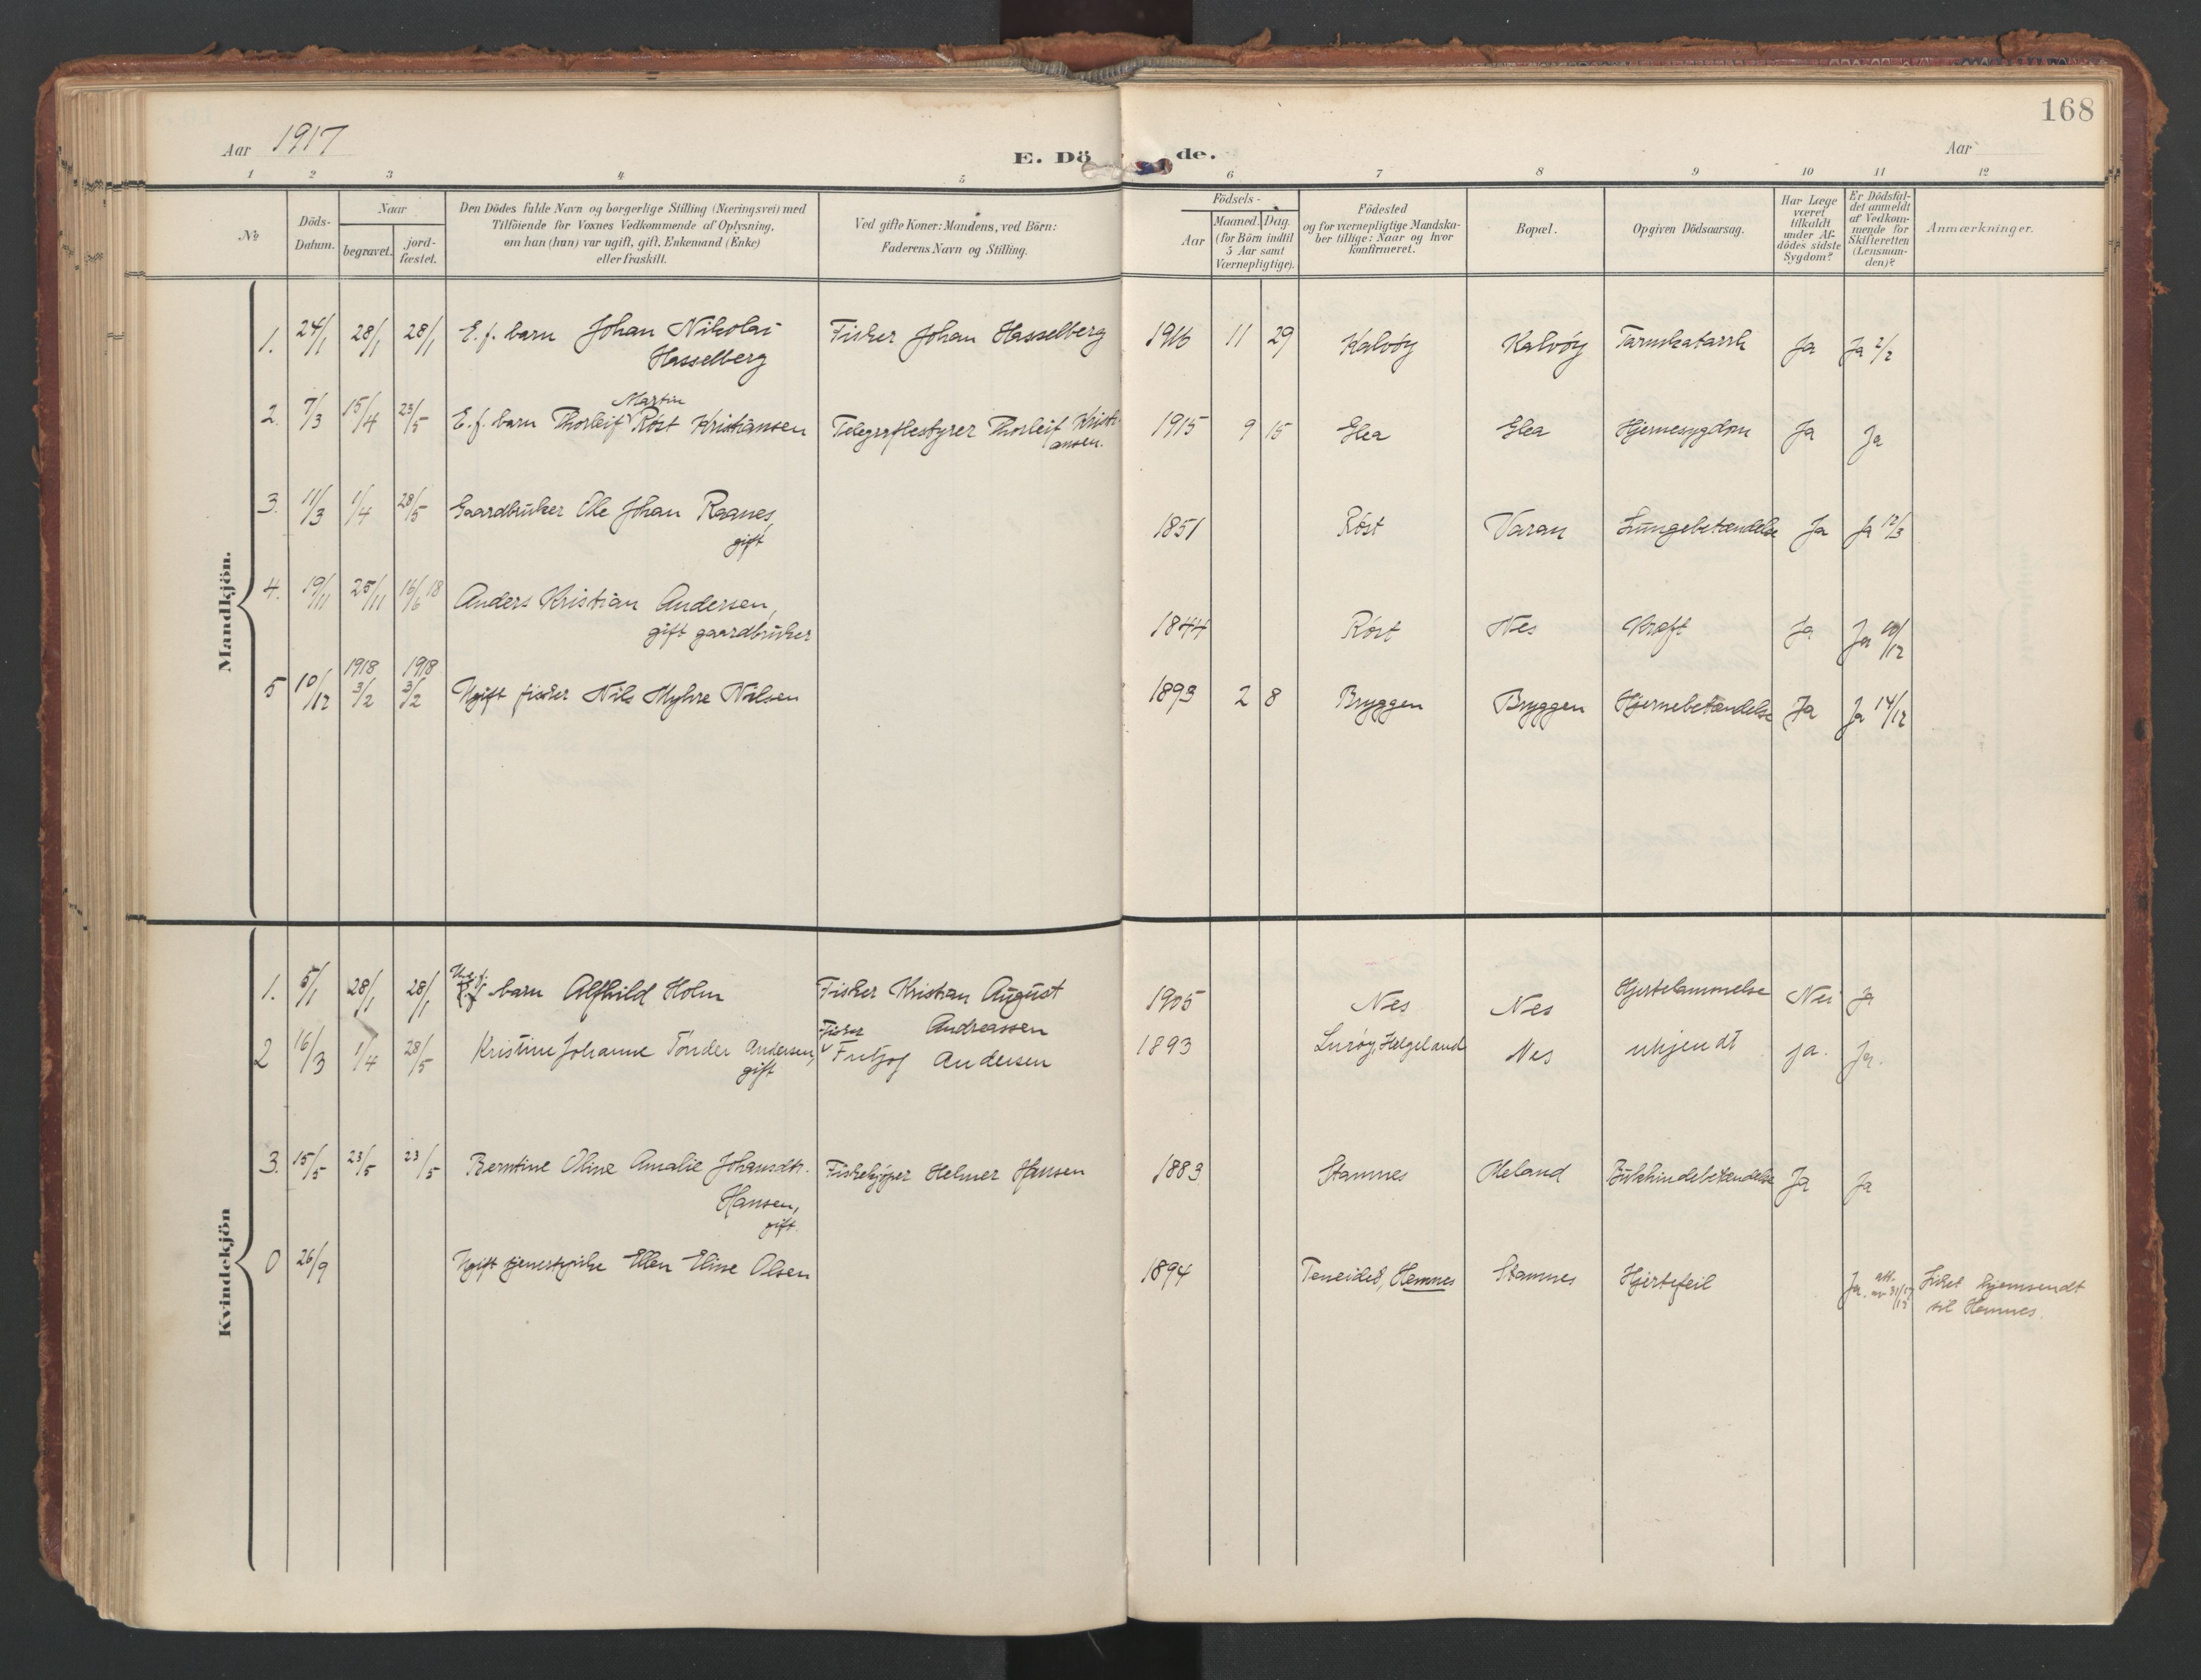 168
Aar 1917
E. Dö de.
Aar
1 2 3 4 5 6 7 8 9 10 11 12
No
Döds-
Datum.
Naar
begravet.
jord-
fæstet.
Den Dödes fulde Navn og borgerlige Stilling (Næringsvei) med
Tilföiende for Voxnes Vedkommende af Oplysning,
om han (hun) var ugift, gift, Enkemand (Enke)
eller fraskilt.
Ved gifte Koner: Mandens, ved Börn:
Faderens Navn og Stilling.
Födsels-
Aar
Maaned. Dag.
(for Börn indtil
5 Aar samt
Værnepligtige).
Födested
og for værnepligtige Mandska-
ber tillige: Naar og hvor
konfirmeret.
Bopæl.
Opgiven Dödsaarsag.
Har Læge
været
tilkaldt
under Af-
dödes sidste
Sygdom?
Er Dödsfal-
det anmeldt
af Vedkom-
mende for
Skifteretten
(Lensman-
den)?
Anmærkninger.
Mandkjön.
1. 24/1 28/1 28/1 E. f. barn Johan Nikolai Fisker Johan Hasselberg 1916 11 29 Kalvöy Kalvöy Tarmkatarrh Ja Ja 2/2
Hasselberg
Martin
2. 7/3 15/4 23/5 E. f. barn Thorleif Röst Kristiansen Telegrafbestyrer Thorleif Kristi- 1915 9 15 Glea Glea Hjernesygdom Ja Ja
ansen.
3. 11/3 1/4 28/5 Gaardbruker Ole Johan Raanes, 1851 Röst Varan Lungebetændelse Ja Ja 12/3
gift
4. 19/11 25/11 16/6 18 Anders Kristian Andersen, 1844 Röst Nes Kræft Ja Ja 10/12
gift gaardbruker
1918 1918
5 10/12 3/2 3/2 Ugift fisker Nils Myhre Nilsen 1893 2 8 Bryggen Bryggen Hjernebetændelse Ja Ja 14/12
Kvindekjön
1. 5/1 28/1 28/1 barn Alfhild Holm Fisker Kristian August 1905 Nes Nes Hjertelammelse Nei Ja
Andreassen
Fisker
2 16/3 1/4 28/5 Kristine Johanne Tönder Andersen, Fritjof Andersen 1893 Luröy, Helgeland Nes ukjendt ja. Ja.
gift
3. 15/5 23/5 23/5 Berntine Oline Amalie Johansdtr. Fiskekjöper Helmer Hansen 1883 Stamnes Öeland Bukhindebetændelse Ja Ja
Hansen,
gift.
0 26/9 Ugift tjenestpike Ellen Eline Olsen 1894 Teneidet, Hemnes Stamnes Hjertefeil Ja. att. Liket hjemsendt
til Hemnes.